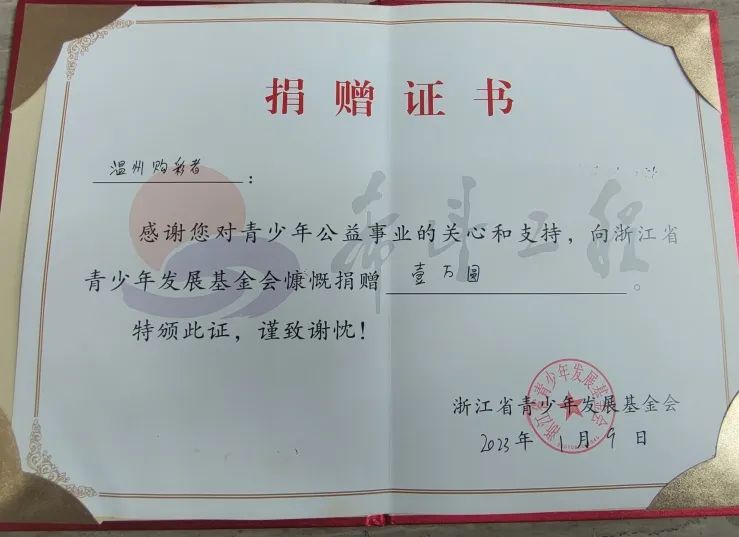 捐赠证书
温州购彩者：
感谢您对青少年公益事业的关心和支持，向浙江省
青少年发展基金会慷慨捐赠壹万圆。
特颁此证，谨致谢忱！
希望工程
浙江省青少年发展基金会
浙江省青少年发展基金会
2023年1月9日